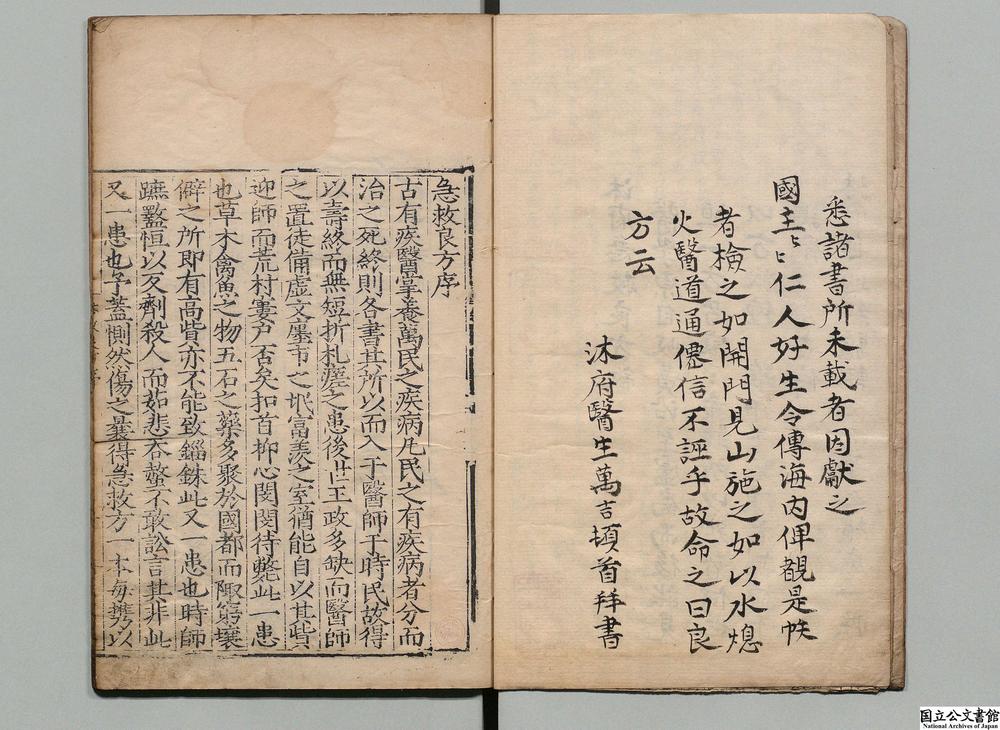 悉諸書所未載者因獻之
國主〻仁人好生令傳海内俾覩是帙
者檢之如開門見山施之如以水熄
火醫道通僊信不誣乎故命之曰良
方云
沐府醫生萬吉頓首拜書
急救良方序
古有疾醫掌養萬民之疾病凡民之有疾病者分而
治之死終則各書其所以而入于醫師于時民故得
以壽終而無短折札瘥之患後世王政多缺而醫師
之置徒備虚文廛市之氓富羨之室猶能自以其貲
迎師而荒村窶户否矣扣首抑心閔閔待斃此一患
也草木禽魚之物五石之藥多聚於國都而陬窮壤
僻之所即有高貲亦不能致錙銖此又一患也時師
蹠盭恒以反劑殺人而茹悲吞螫不敢訟言其非此
又一患也予蓋惻然傷之曩得急救方一本每携以
国立公文書館
National Archives of Japan